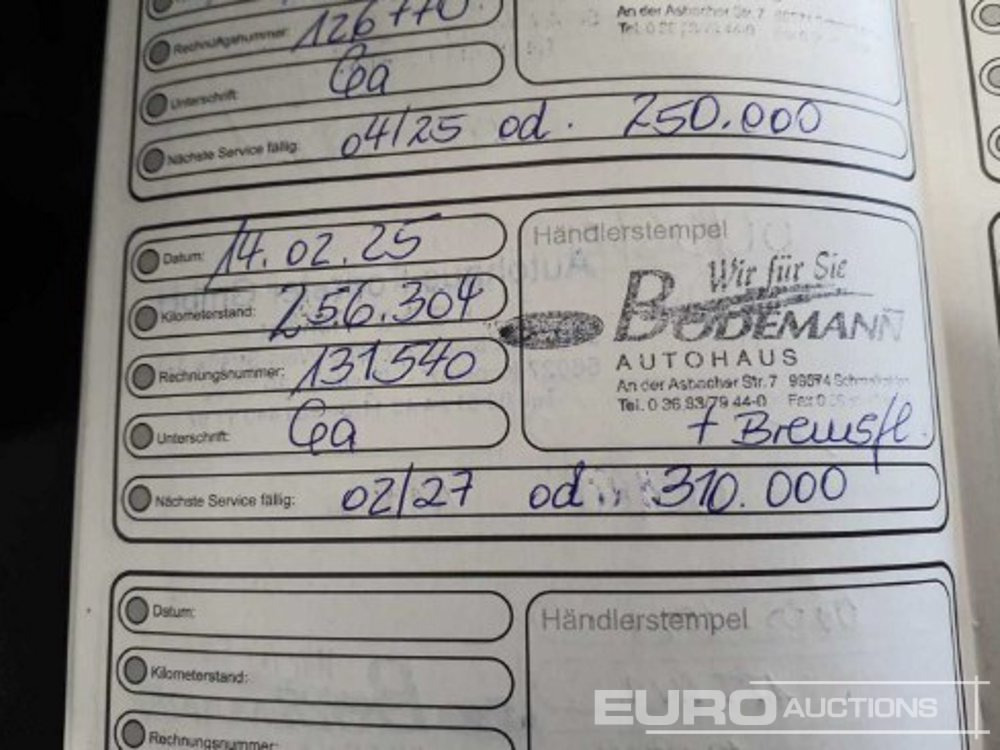 Rechnungsnummer: 126770
An der Asbacher Str. 7
Unterschrift: Ga
Nächste Service fällig: 04/25 od. 250.000
Datum: 14.02.25
Händlerstempel
Wir für Sie
Kilometerstand: 256.304
BODEMANN
AUTOHAUS
Rechnungsnummer: 131540
An der Asbacher Str. 7 98574
Tel. 0 36 83/79 44-0 Fax 0
Unterschrift: Ga
+ Bremsfl.
Nächste Service fällig: 02/27 od. 310.000
Datum:
Händlerstempel
Kilometerstand:
Rechnungsnummer:
EURO AUCTIONS